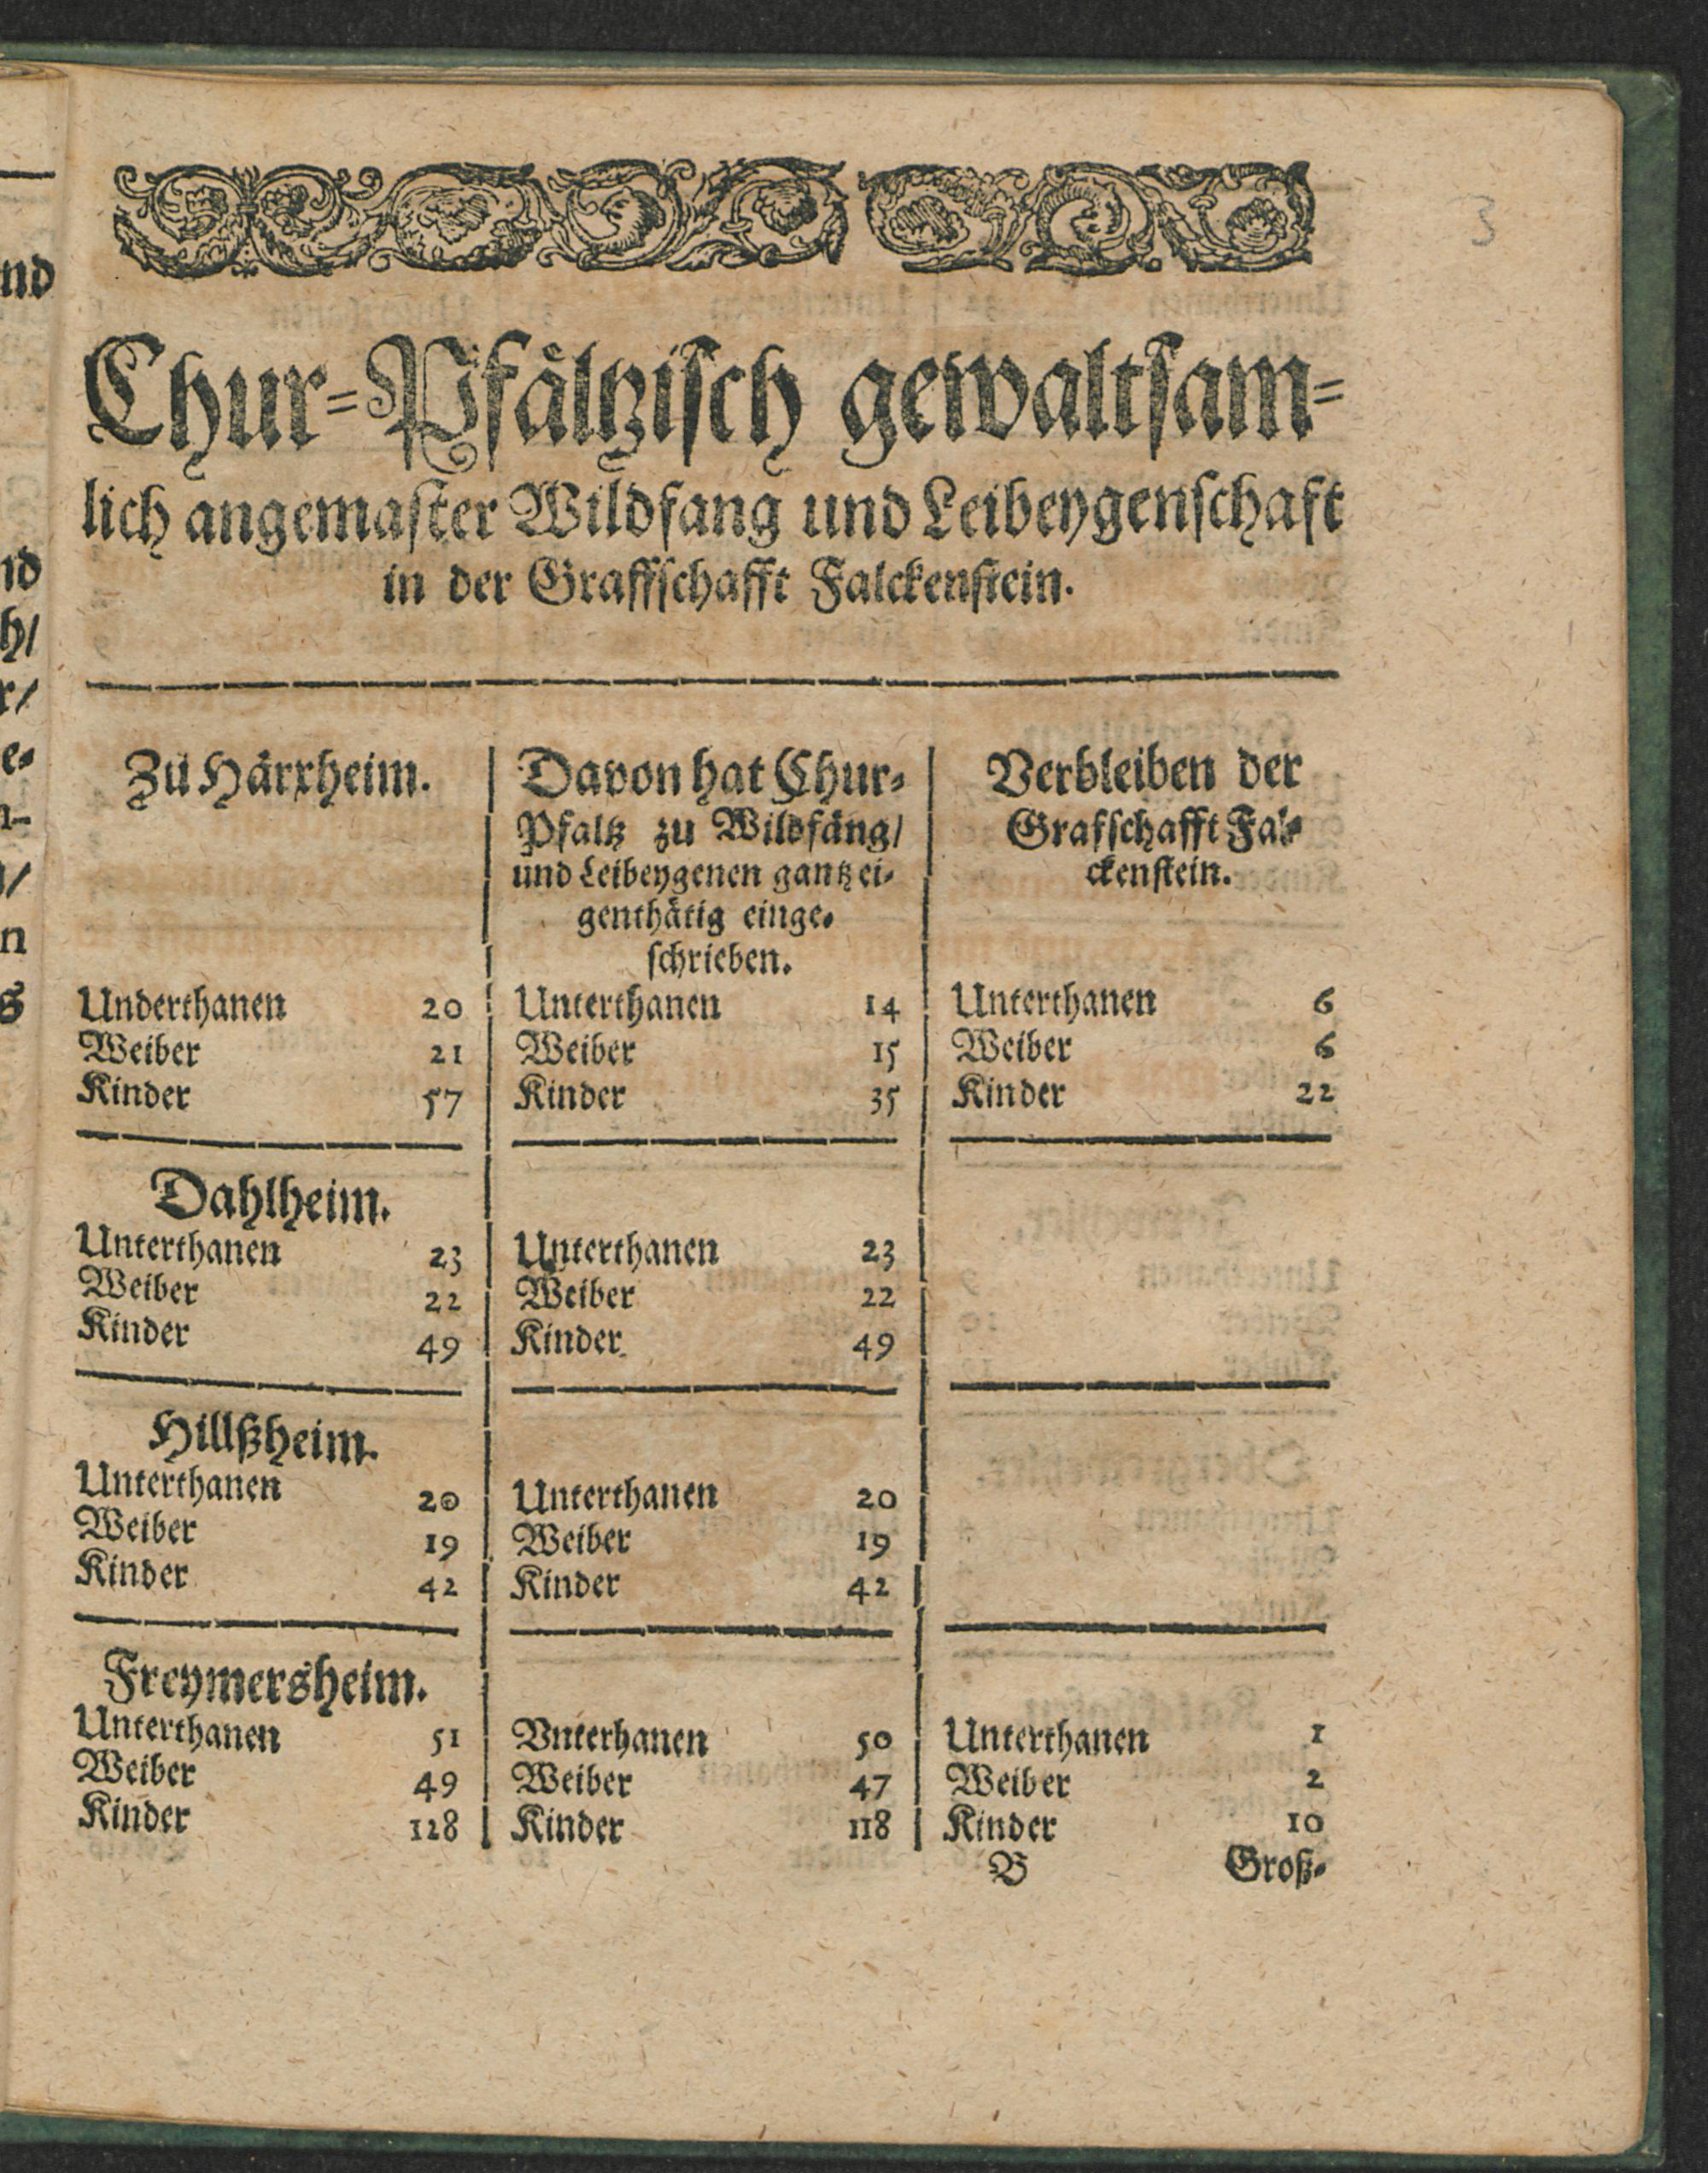 3
Chur-Pfältzisch gewaltsam-
lich angemaster Wildfang und Leibeygenschaft
in der Graffschafft Falckenstein.
Zu Härxheim.
Davon hat Chur-
Pfaltz zu Wildfäng/
und Leibeygenen gantz ei-
genthätig einge-
schrieben.
Verbleiben der
Grafschafft Fal-
ckenstein.
Underthanen 20 Unterthanen 14 Unterthanen 6
Weiber 21 Weiber 15 Weiber 6
Kinder 57 Kinder 35 Kinder 22
Dahlheim.
Unterthanen 23 Unterthanen 23
Weiber 22 Weiber 22
Kinder 49 Kinder 49
Hillßheim.
Unterthanen 20 Unterthanen 20
Weiber 19 Weiber 19
Kinder 42 Kinder 42
Freymersheim.
Unterthanen 51 Vnterhanen 50 Unterthanen 1
Weiber 49 Weiber 47 Weiber 2
Kinder 128 Kinder 118 Kinder 10
B Groß-